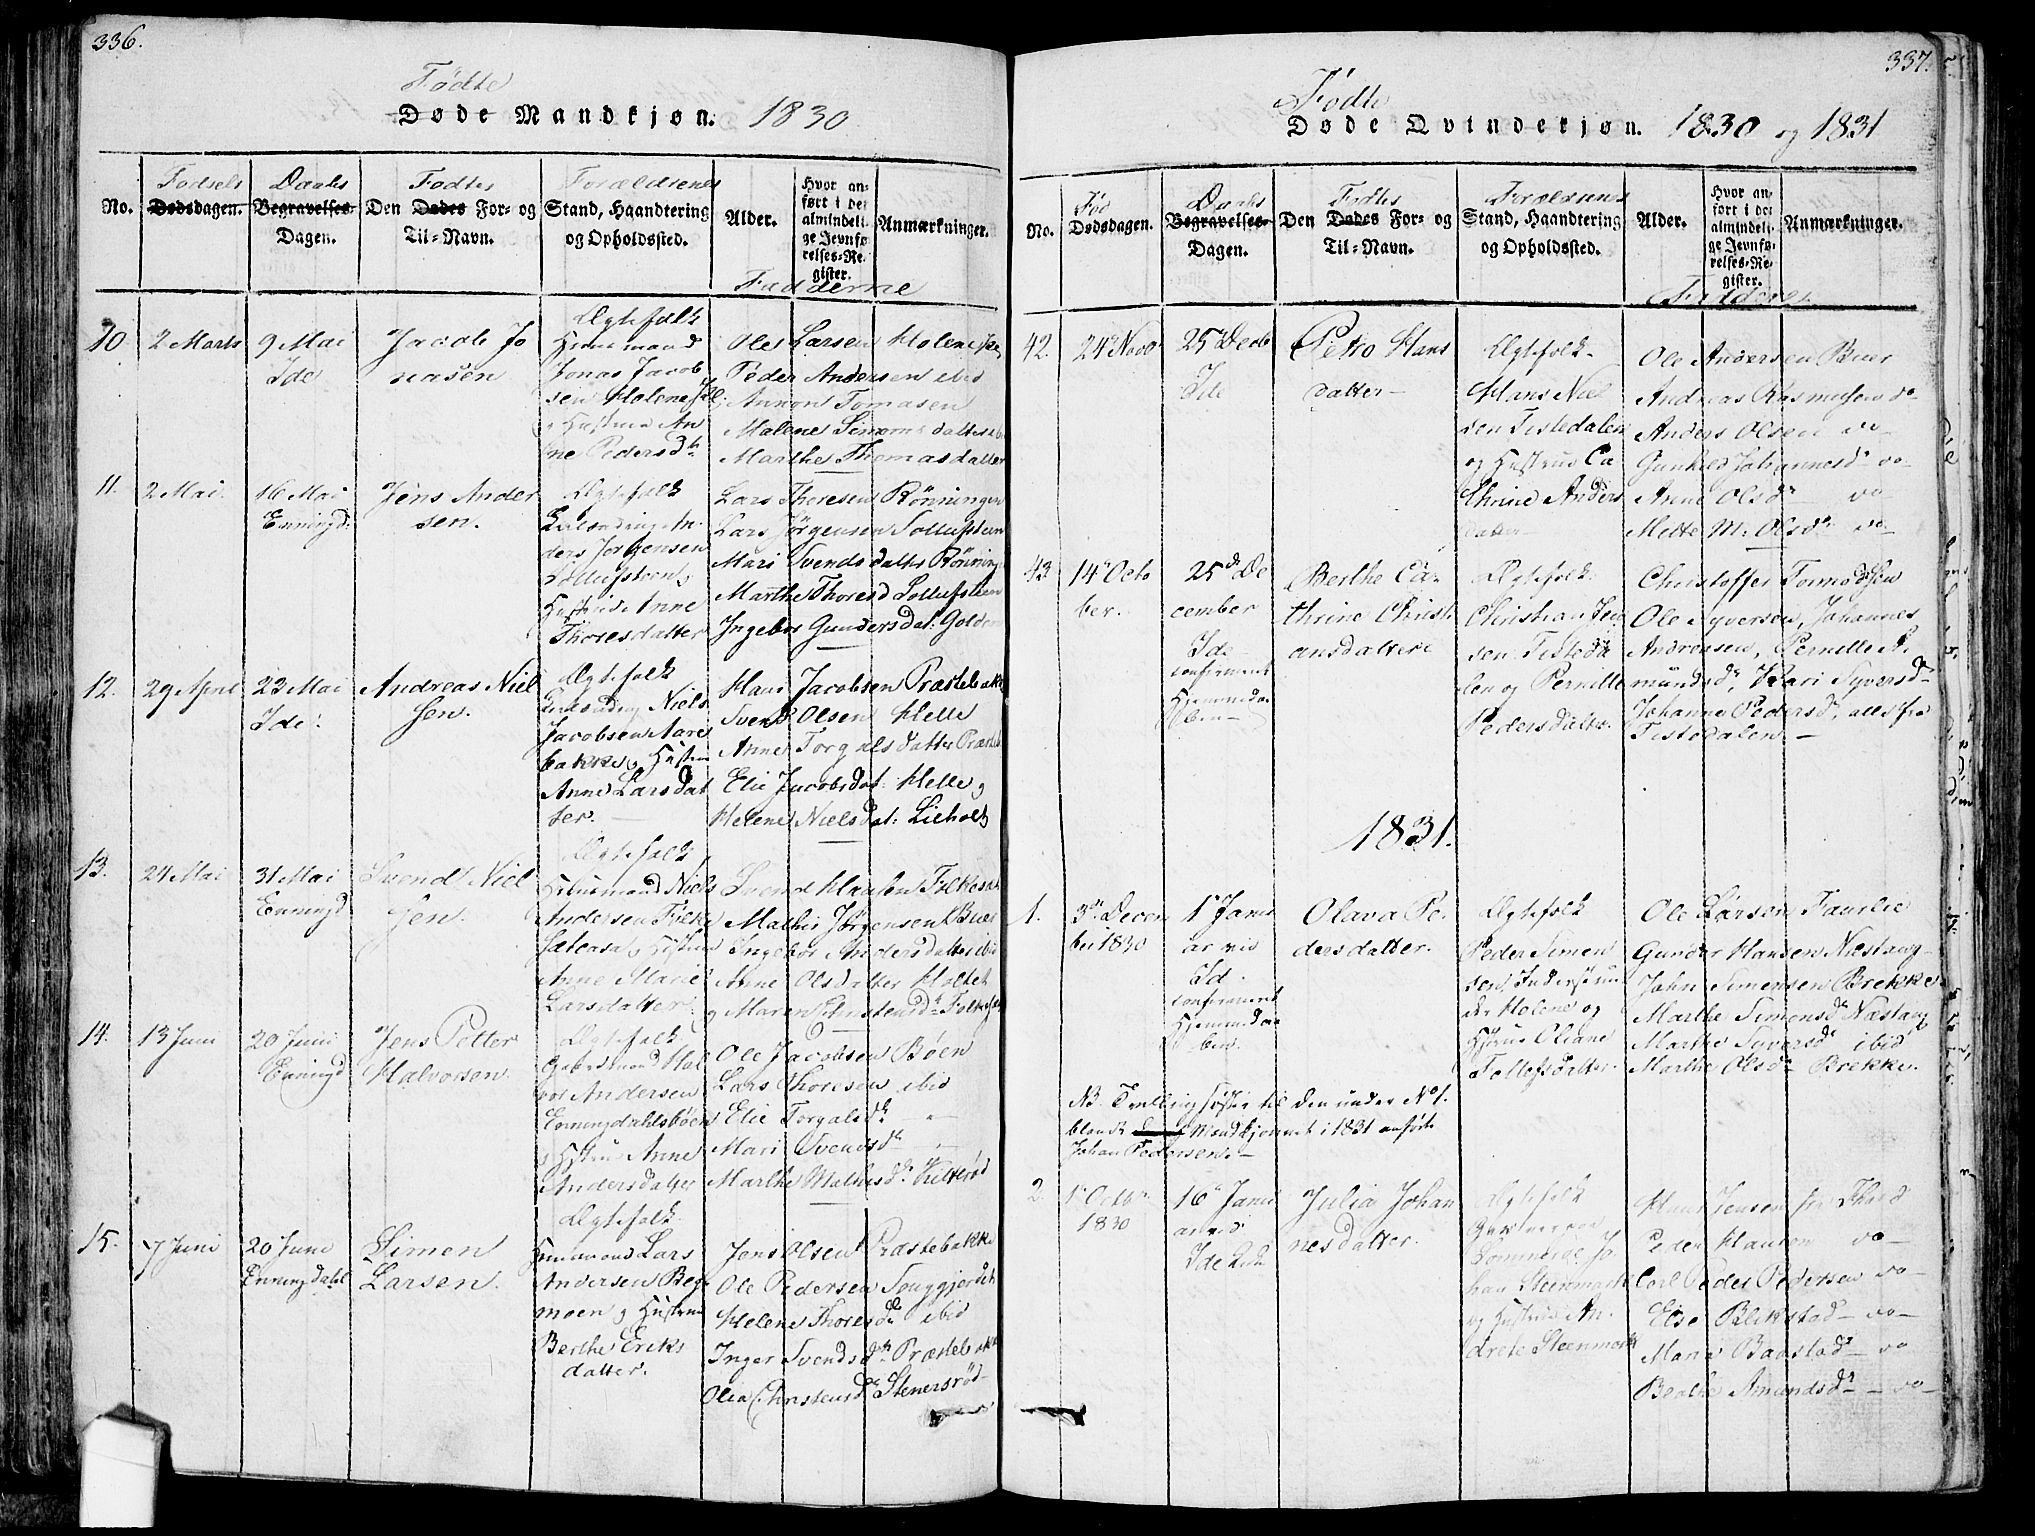 336.
Fødte
Døde Mandkjøn. 1830
No.
Fødsels
Dødsdagen.
Daabs
Begravelses-
Dagen.
Fødtes
Den Dødes For- og
Til-Navn.
Forældrenes
Stand, Haandtering
og Opholdssted.
Alder.
Hvor an-
ført i det
almindeli-
ge Jevnfø-
relses-Re-
gister.
Anmærkninger.
Fadderne
10.
2 Marts
9 Mai
Ide
Jacob Jo
nasen
Ægtefolk
Huusmand
Jonas Jacob
sen Holene
og Hustrue An
ne Pedersd
Ole Larsen Holene
Peder Andersen ibid
Annon Tomasen
Malene Simensdatter
Marthe Thomasdatter
11.
2 Mai
16 Mai
Enningd:
Jens Ander
sen.
Ægtefolk
An-
ders Jørgensen
Tollufsteen
Hustrue Anne
Thoresdatter
Lars Thoresen Rønningen
Lars Jørgensen Tollufsteen
Mari Svendsdatter Rønning
Marthe Thoresd Tollufsteen
Ingebor Gundersdat:
12.
29 April
23 Mai
Ide:
Andreas Niel
sen.
Ægtefolk
Niels
Jacobsen Aare
bakke og Hustru
Anne Larsdat
ter.
Hans Jacobsen Præstebakke
Svend Olsen Helle
Anne Torgalsdatter Præsteb
Elie Jacobsdat: Helle og
Helene Nielsdat: Lieholt
13.
24 Mai
31 Mai
Enningd
Svend Niel
sen.
Ægtefolk
Huusmand Niels
Andersen
og Hustrue
Anne Marie
Larsdatter
Svend Hansen
Mathis Jørgensen Buer
Ingebor Andersdatter ibid
Anne Olsdatter Holtet
og Maren Christensd
14.
13 Juni
20 Juni
Enningd
Jens Petter
Halvorsen.
Ægtefolk
Gaardmand Hal
vor Andersen
Enningdahlsbøen
og Hustrue Anne
Andersdatter
Ole Jacobsen Bøen
Lars Thoresen ibid
Elie Torgalsd
Mari Svendsd
Marthe Mathisd
15.
7 Juni
20 Juni
Enningdahl
Simen
Larsen.
Ægtefolk
Huusmand Lars
Andersen Beg
moen og Hustrue
Berthe Eriks
datter.
Jens Olsen Præstebakke
Ole Pedersen
Helene Thoresd ibid
Inger Svendsd Præstebakke
Olia Christensd Stenersrød
337.
Fødte
Døde Qvindekjøn. 1830 og 1831
No.
Fød
Dødsdagen.
Daabs
Begravelses-
Dagen.
Fødtes
Den Dødes For- og
Til-Navn.
Forældrenes
Stand, Haandtering
og Opholdssted.
Alder.
Hvor an-
ført i det
almindeli-
ge Jevnfø-
relses-Re-
gister.
Anmærkninger.
Faddere.
42.
24 Novb
25 Decb
Ide
Petro Hans
datter
Ægtefolk
Hans Niel
sen Tistedalen
og Hustrue Ca
thrine Anders
datter
Ole Andersen Buer
Andreas Rasmusen do
Anders Olsen do
Gunhild Johannesd do
Anne Olsd do
Mette M: Olsd do
43
14 Octo
ber.
25 De
cember
Ide
confirmeret
Hjemmedaa
ben
Berthe Ca-
thrine Christi
ansdatter
Ægtefolk
Christian Jen
sen Tisteda
len og Pernille
Pedersdatter.
Christoffer Tormodsen
Ole Syversen, Johannes
Andreasen, Pernille A
mundsd, Kari Syversd
Johanne Pedersd, alle fra
Tistedalen
1831.
1.
3 Decem
ber 1830
1 Janu
ar ved
Id
confirmeret
Hjemmedaa
ben.
Olava Pe
dersdatter.
Ægtefolk
Peder Simen
sen, Inderst un
der Holene og
Hustrue Oliane
Tollefsdatter.
Ole Larsen
Gunder Hansen Næstaug
John Simensen Brekke
Marthe Simensd Næstaug
Marthe Syversd ibid
Marthe Olsd Brekke.
NB. Tvillingsøster til den under No 1.
blandt Mandkjønnet i 1831 anførte
Johan Pedersen.
2.
1 Octbr
1830
16 Janu
ar ved
Ide Kirke
Julia Johan
nesdatter.
Ægtefolk
Jo
han Steenmark
og Hustrue An
drete Steenmark
Hans Jensen fra
Peder Hansen do
Carl Peder Pedersen do
Else Blikstad do
Maria Baastad do
Berthe Amundsd do